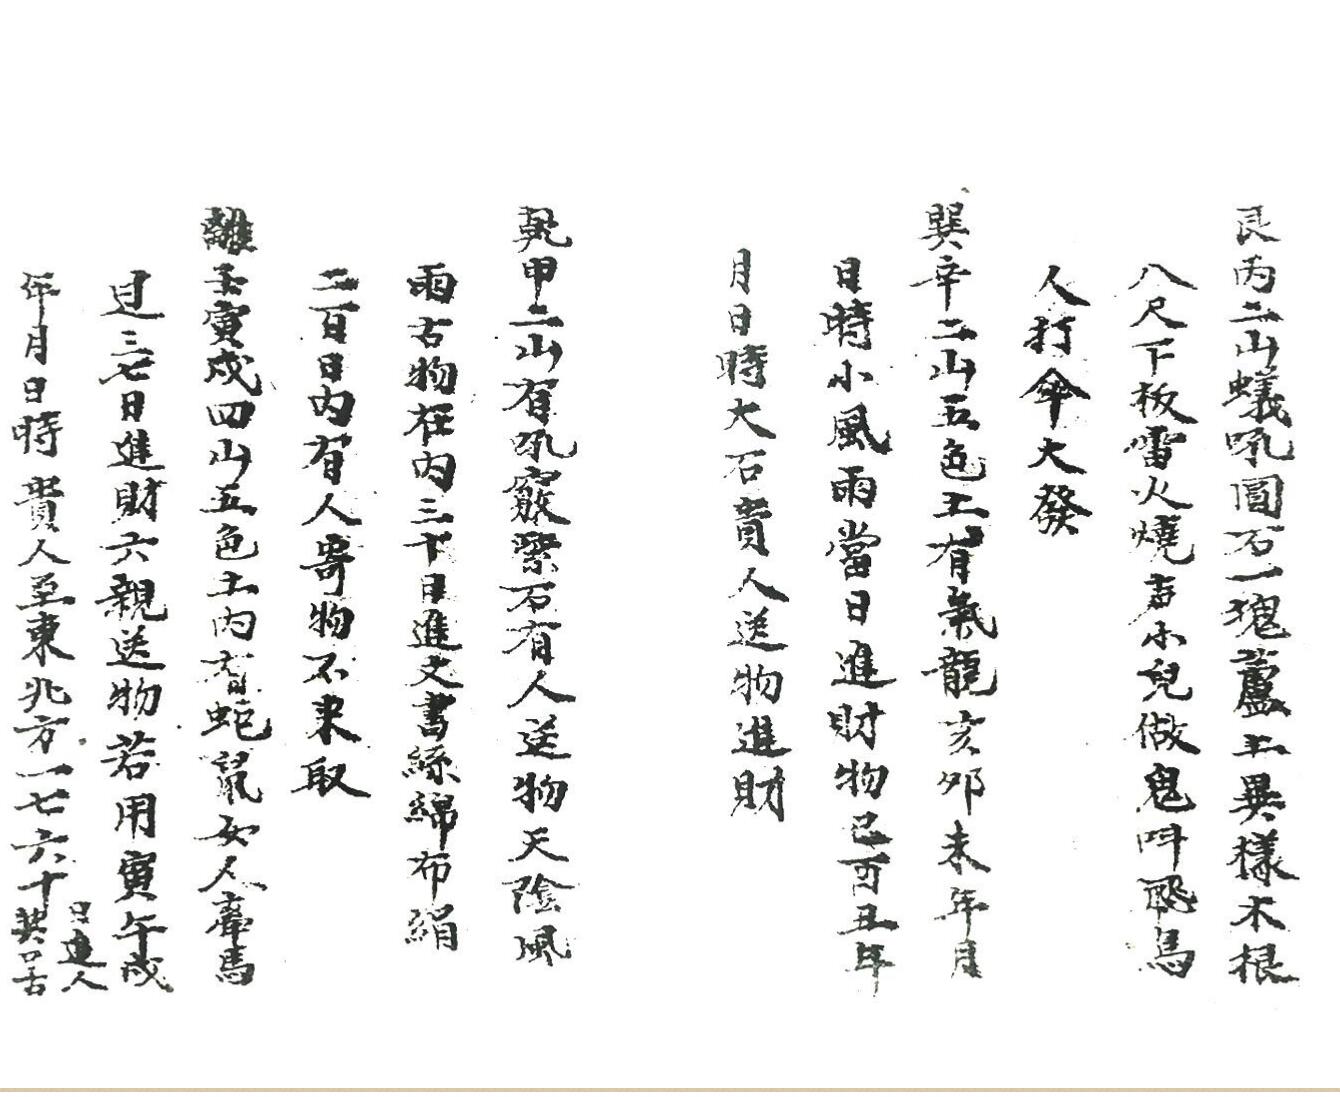 艮丙二山蟻吼圓石一塊蘆土異樣木根
八尺下板雷火燒声小兒做鬼叫騎馬
人打傘大發
巽辛二山五色土有氣龍亥卯未年月
日時小風雨當日進財物巳酉丑年
月日時大石貴人送物進財
乾甲二山有吼竅緊石有人送物天陰風
雨古物在內三十日進文書絲綿布絹
二百日內有人寄物不來取
離壬寅戌四山五色土內有蛇鼠女人牽馬
过三七日進財六親送物若用寅午戌
年月日時貴人至東北方一七六十
日進人
口舌